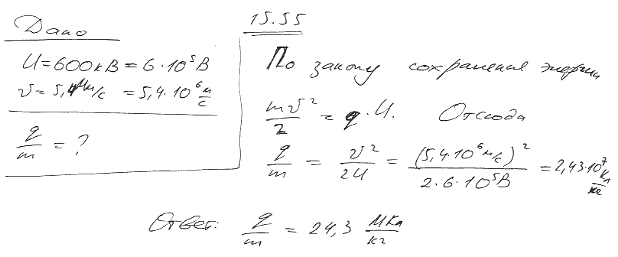 15.55
Дано
U = 600кВ = 6·10⁵В
v = 5,4 Мм/с = 5,4·10⁶ м/с
q/m = ?
По закону сохранения энергии
mv²/2 = q·U. Отсюда
q/m = v²/2U = (5,4·10⁶ м/с)²/2·6·10⁵В = 2,43·10⁷ Кл/кг
Ответ: q/m = 24,3 МКл/кг